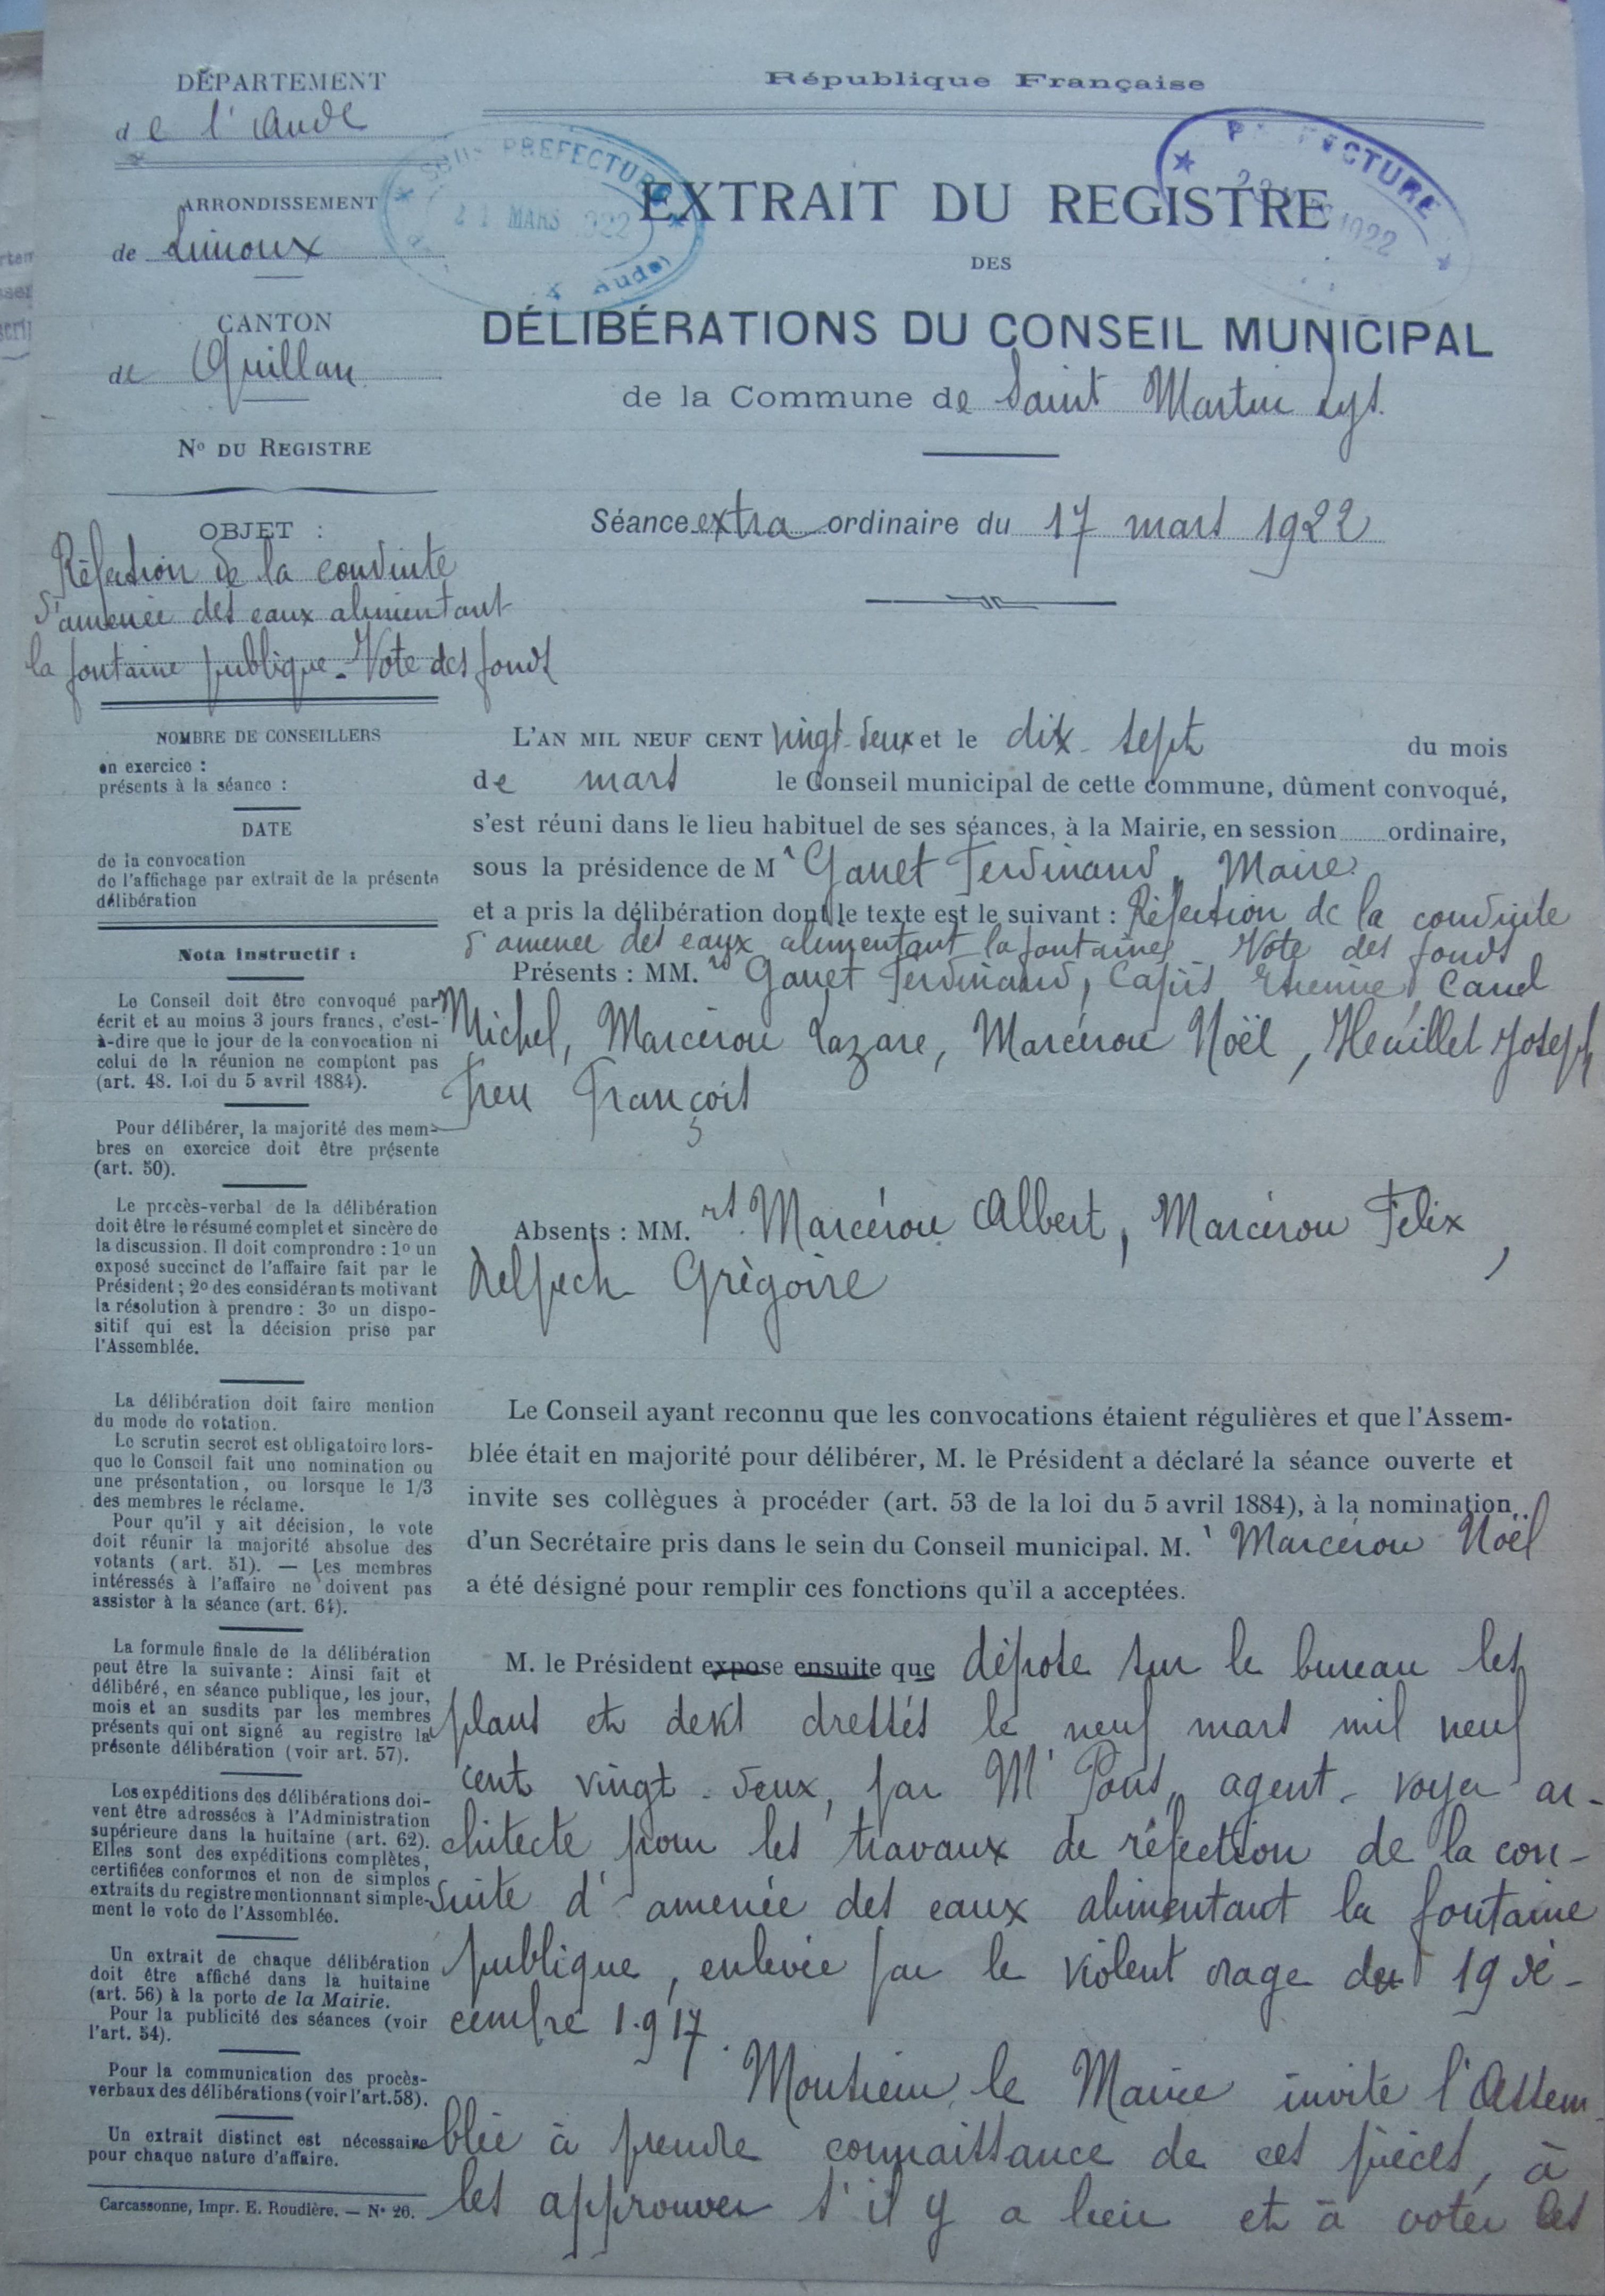 DÉPARTEMENT
de l'Aude
ARRONDISSEMENT
de Limoux
CANTON
de Quillan
No DU REGISTRE
OBJET :
Réfection de la conduite
d'amenée des eaux alimentant
la fontaine publique - Vote des fonds
NOMBRE DE CONSEILLERS
en exercice :
présents à la séance :
DATE
de la convocation
de l'affichage par extrait de la présente
délibération
Nota Instructif :
Le Conseil doit être convoqué par
écrit et au moins 3 jours francs, c'est-
à-dire que le jour de la convocation ni
celui de la réunion ne comptent pas
(art. 48. Loi du 5 avril 1884).
Pour délibérer, la majorité des mem-
bres en exercice doit être présente
(art. 50).
Le procès-verbal de la délibération
doit être le résumé complet et sincère de
la discussion. Il doit comprendre : 1o un
exposé succinct de l'affaire fait par le
Président ; 2o des considérants motivant
la résolution à prendre : 3o un dispo-
sitif qui est la décision prise par
l'Assemblée.
La délibération doit faire mention
du mode de votation.
Le scrutin secret est obligatoire lors-
que le Conseil fait une nomination ou
une présentation, ou lorsque le 1/3
des membres le réclame.
Pour qu'il y ait décision, le vote
doit réunir la majorité absolue des
votants (art. 51). — Les membres
intéressés à l'affaire ne doivent pas
assister à la séance (art. 64).
La formule finale de la délibération
peut être la suivante : Ainsi fait et
délibéré, en séance publique, les jour,
mois et an susdits par les membres
présents qui ont signé au registre la
présente délibération (voir art. 57).
Les expéditions des délibérations doi-
vent être adressées à l'Administration
supérieure dans la huitaine (art. 62).
Elles sont des expéditions complètes,
certifiées conformes et non de simples
extraits du registre mentionnant simple-
ment le vote de l'Assemblée.
Un extrait de chaque délibération
doit être affiché dans la huitaine
(art. 56) à la porte de la Mairie.
Pour la publicité des séances (voir
l'art. 54).
Pour la communication des procès-
verbaux des délibérations (voir l'art. 58).
Un extrait distinct est nécessaire
pour chaque nature d'affaire.
Carcassonne, Impr. E. Roudière. — No 26.
République Française
SOUS PREFECTURE
21 MARS 1922
(Aude)
PREFECTURE
1922
EXTRAIT DU REGISTRE
DES
DÉLIBÉRATIONS DU CONSEIL MUNICIPAL
de la Commune de Saint Martin Lys.
Séance extra ordinaire du 17 mars 1922
L'AN MIL NEUF CENT vingt-deux et le dix-sept du mois
de mars le Conseil municipal de cette commune, dûment convoqué,
s'est réuni dans le lieu habituel de ses séances, à la Mairie, en session ordinaire,
sous la présidence de Mr Ganet Ferdinand, Maire.
et a pris la délibération dont le texte est le suivant : Réfection de la conduite
d'amenée des eaux alimentant la fontaine, Vote des fonds
Présents : MM.rs Ganet Ferdinand, Capis Etienne, Canel
Michel, Marcérou Lazare, Marcérou Noël, Heuillet Joseph
Freu François
Absents : MM.rs Marcérou Albert, Marcérou Felix,
Delpech Grégoire
Le Conseil ayant reconnu que les convocations étaient régulières et que l'Assem-
blée était en majorité pour délibérer, M. le Président a déclaré la séance ouverte et
invite ses collègues à procéder (art. 53 de la loi du 5 avril 1884), à la nomination
d'un Secrétaire pris dans le sein du Conseil municipal. M.r Marcérou Noël
a été désigné pour remplir ces fonctions qu'il a acceptées.
M. le Président expose ensuite que dépose sur le bureau les
plans et devis dressés le neuf mars mil neuf
cent vingt-deux, par Mr Pons, agent-voyer ar-
chitecte pour les travaux de réfection de la con-
duite d'amenée des eaux alimentant la fontaine
publique, enlevée par le violent orage du 19 dé-
cembre 1917.
Monsieur le Maire invite l'Assem-
blée à prendre connaissance de ces pièces, à
les approuver s'il y a lieu et à voter les